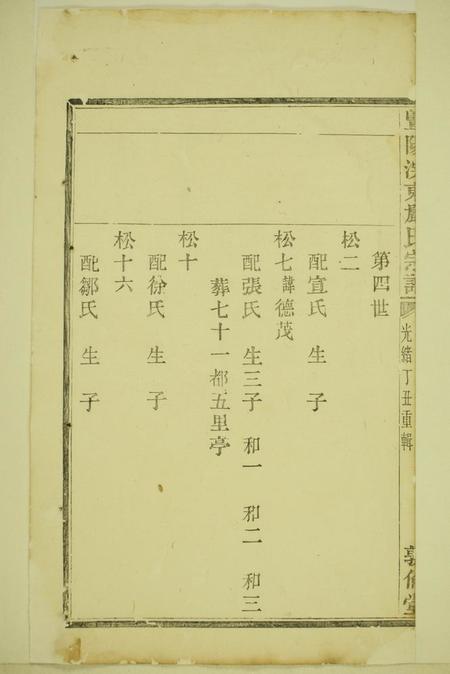 暨陽浣東盧氏宗譜 光緒丁丑重輯 敦倫堂
第四世
松二
配宣氏 生 子
松七諱德茂
配張氏 生三子 和一 和二 和三
葬七十一都五里亭
松十
配徐氏 生 子
松十六
配鄒氏 生 子